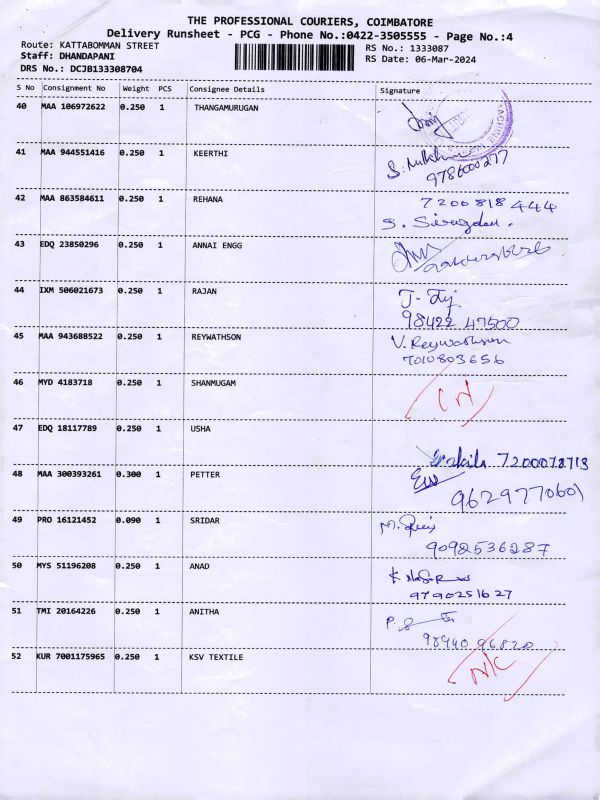 THE PROFESSIONAL COURIERS, COIMBATORE
Delivery Runsheet - PCG - Phone No.:0422-3505555 - Page No.:4
Route: KATTABOMMAN STREET RS No.: 1333087
Staff: DHANDAPANI RS Date: 06-Mar-2024
DRS No.: DCJB133308704
S No Consignment No Weight PCS Consignee Details Signature
40 MAA 106972622 0.250 1 THANGAMURUGAN
41 MAA 944551416 0.250 1 KEERTHI
42 MAA 863584611 0.250 1 REHANA 7200818444
43 EDQ 23850296 0.250 1 ANNAI ENGG
44 IXM 506021673 0.250 1 RAJAN
98422 47500
45 MAA 943688522 0.250 1 REYWATHSON V. Reywathson
7010803656
46 MYD 4183718 0.250 1 SHANMUGAM
47 EDQ 18117789 0.250 1 USHA
7200072713
48 MAA 300393261 0.300 1 PETTER
9629770601
49 PRO 16121452 0.090 1 SRIDAR
9092536287
50 MYS 51196208 0.250 1 ANAD
9790251627
51 TMI 20164226 0.250 1 ANITHA
98940 96820
52 KUR 7001175965 0.250 1 KSV TEXTILE N/C